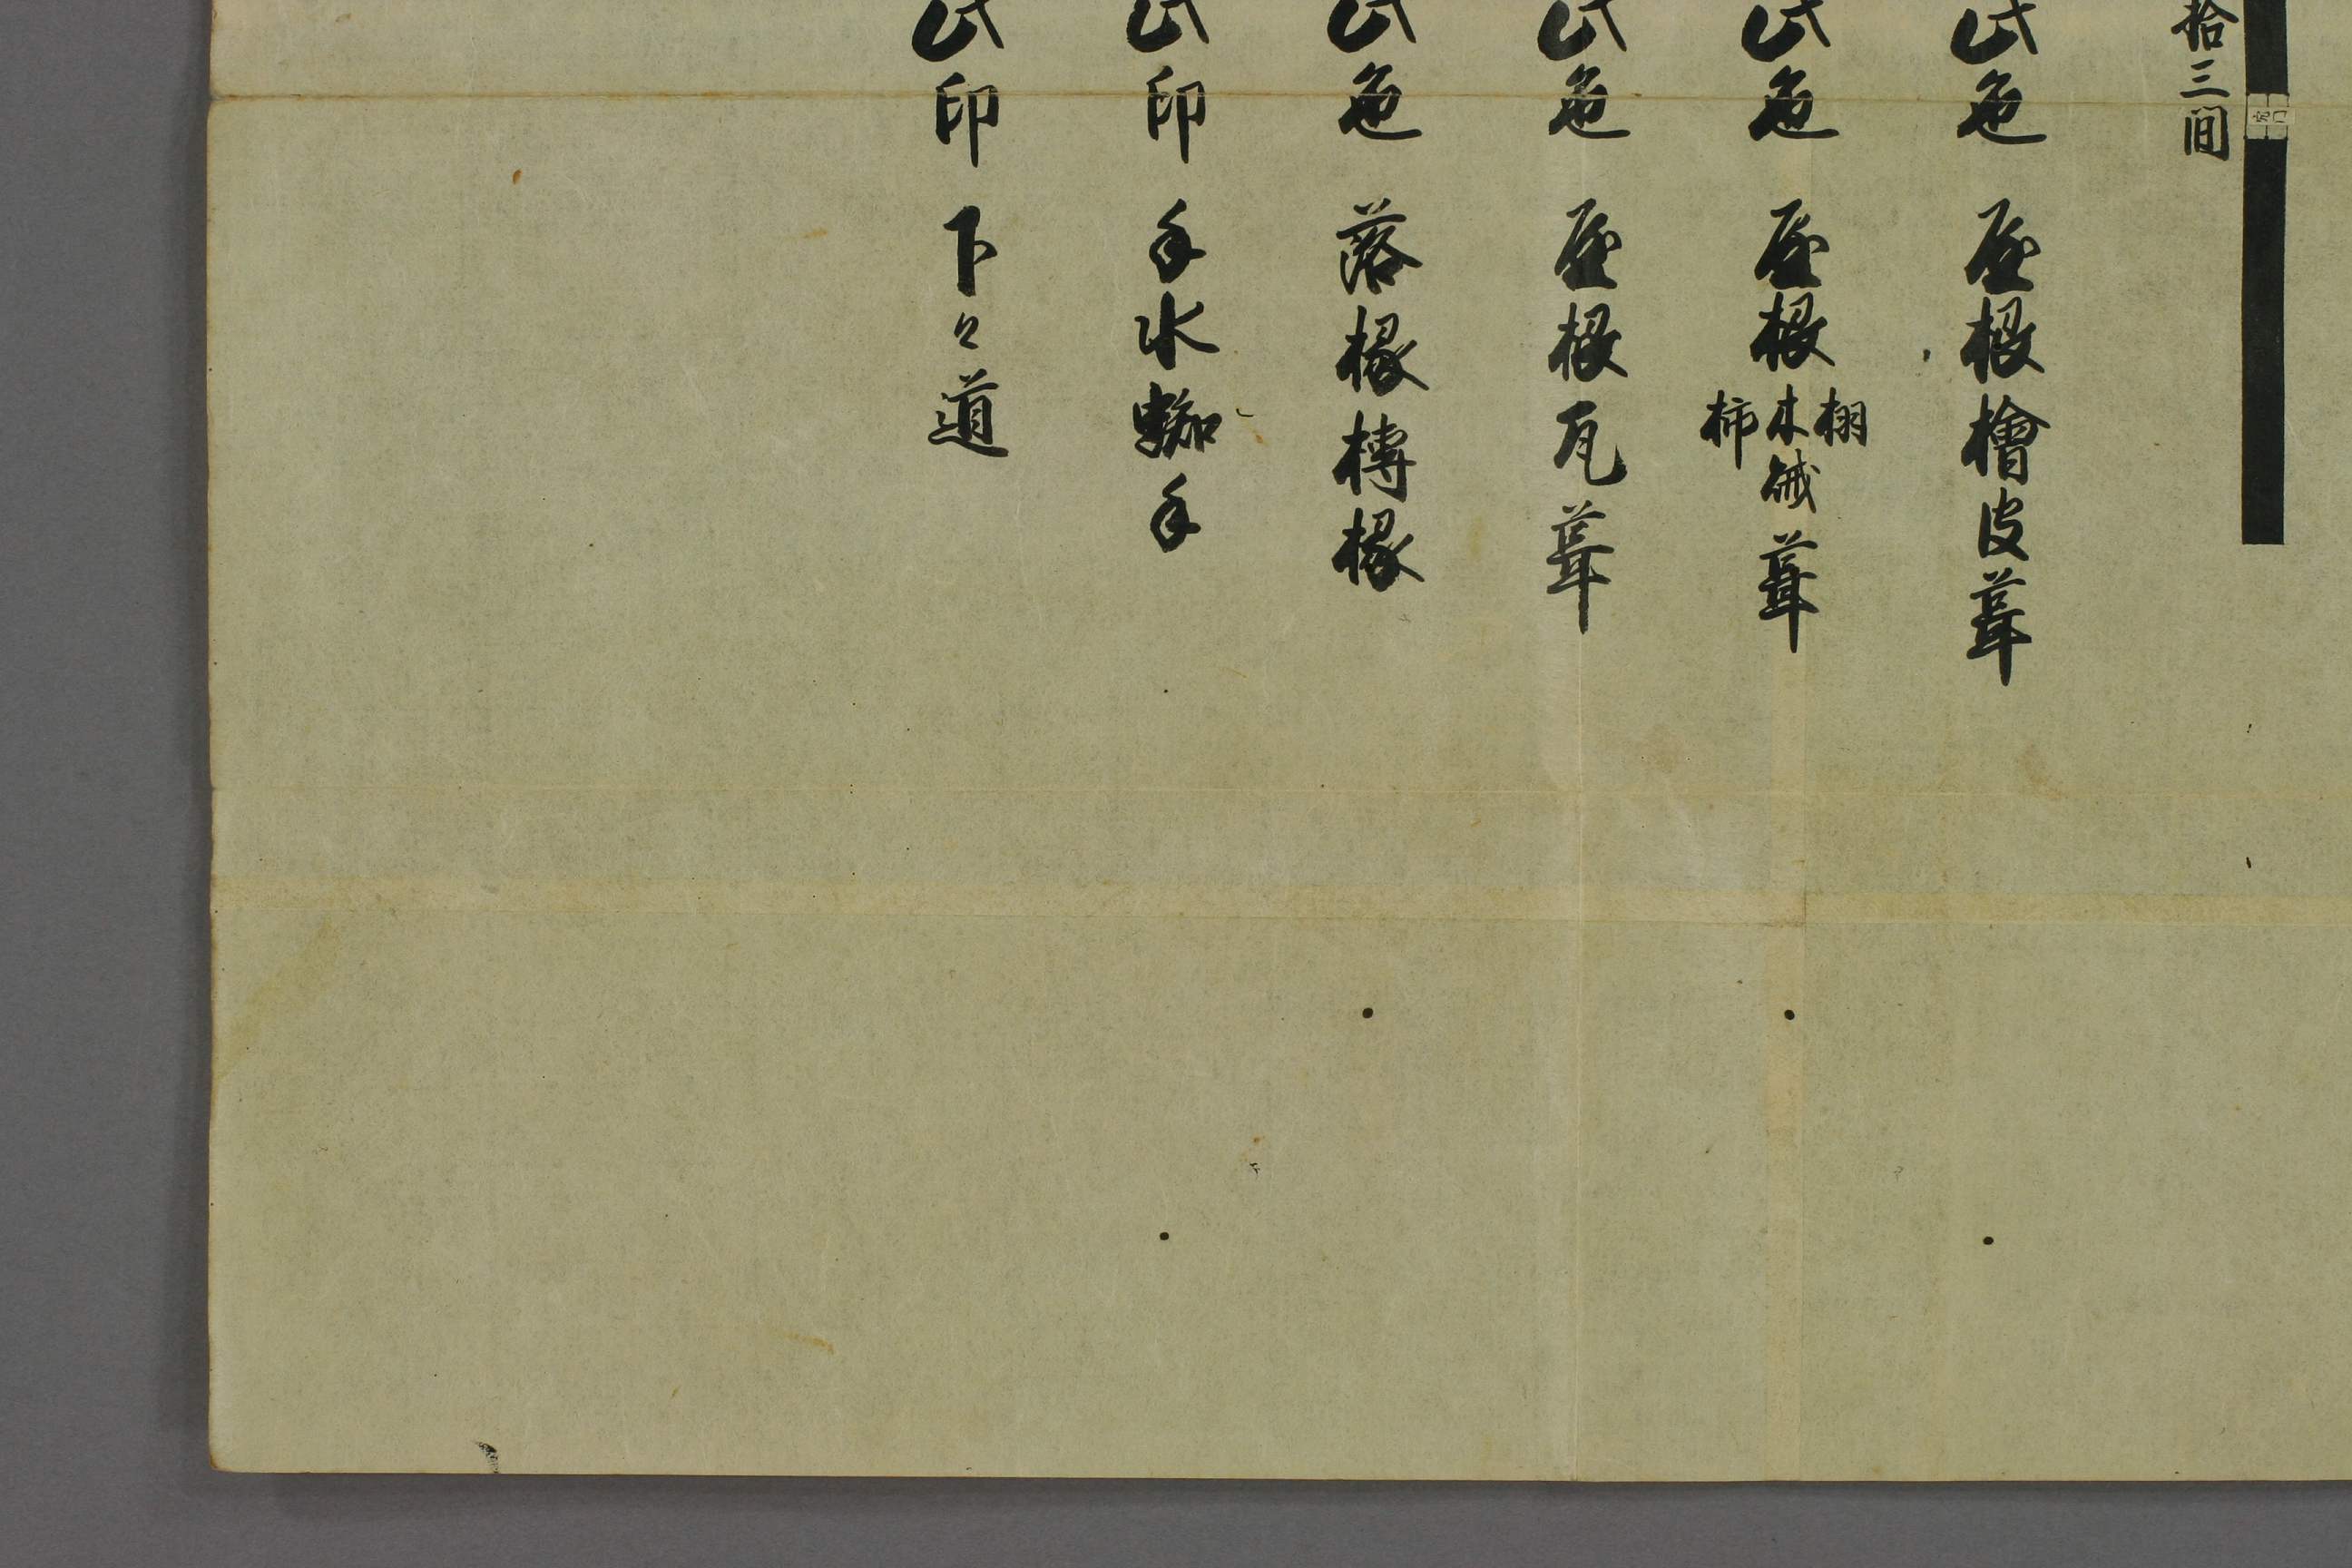 拾三間
此色 屋根檜皮葺
此色 屋根栩木賊柿葺
此色 屋根瓦葺
此色 落椽榑椽
此印 手水蜘手
此印 下々道